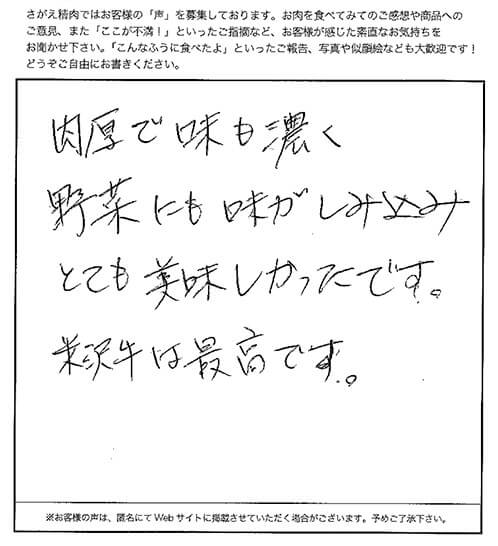 さがえ精肉ではお客様の「声」を募集しております。お肉を食べてみてのご感想や商品への
ご意見、また「ここが不満！」といったご指摘など、お客様が感じた素直なお気持ちを
お聞かせ下さい。「こんなふうに食べたよ」といったご報告、写真や似顔絵なども大歓迎です！
どうぞご自由にお書きください。
肉厚で味も濃く
野菜にも味がしみ込み
とても美味しかったです。
米沢牛は最高です。
※お客様の声は、匿名にてWebサイトに掲載させていただく場合がございます。予めご了承下さい。